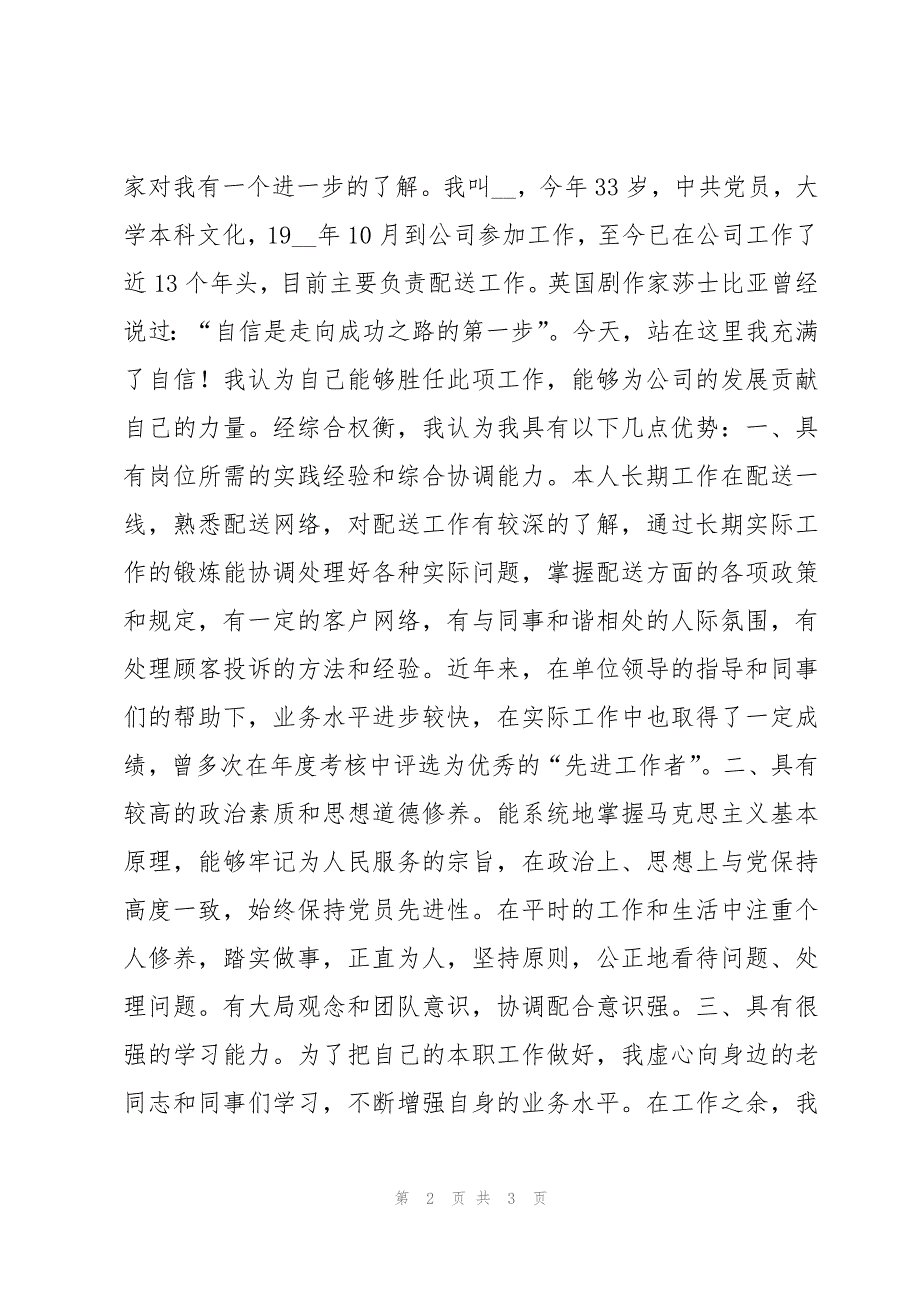 家对我有一个进一步的了解。我叫__，今年 33 岁，中共党员，大
学本科文化，19__年 10 月到公司参加工作，至今已在公司工作了
近 13 个年头，目前主要负责配送工作。英国剧作家莎士比亚曾经
说过：“自信是走向成功之路的第一步”。今天，站在这里我充满
了自信！我认为自己能够胜任此项工作，能够为公司的发展贡献
自己的力量。经综合权衡，我认为我具有以下几点优势：一、具
有岗位所需的实践经验和综合协调能力。本人长期工作在配送一
线，熟悉配送网络，对配送工作有较深的了解，通过长期实际工
作的锻炼能协调处理好各种实际问题，掌握配送方面的各项政策
和规定，有一定的客户网络，有与同事和谐相处的人际氛围，有
处理顾客投诉的方法和经验。近年来，在单位领导的指导和同事
们的帮助下，业务水平进步较快，在实际工作中也取得了一定成
绩，曾多次在年度考核中评选为优秀的“先进工作者”。二、具有
较高的政治素质和思想道德修养。能系统地掌握马克思主义基本
原理，能够牢记为人民服务的宗旨，在政治上、思想上与党保持
高度一致，始终保持党员先进性。在平时的工作和生活中注重个
人修养，踏实做事，正直为人，坚持原则，公正地看待问题、处
理问题。有大局观念和团队意识，协调配合意识强。三、具有很
强的学习能力。为了把自己的本职工作做好，我虚心向身边的老
同志和同事们学习，不断增强自身的业务水平。在工作之余，我
第 2 页 共 3 页